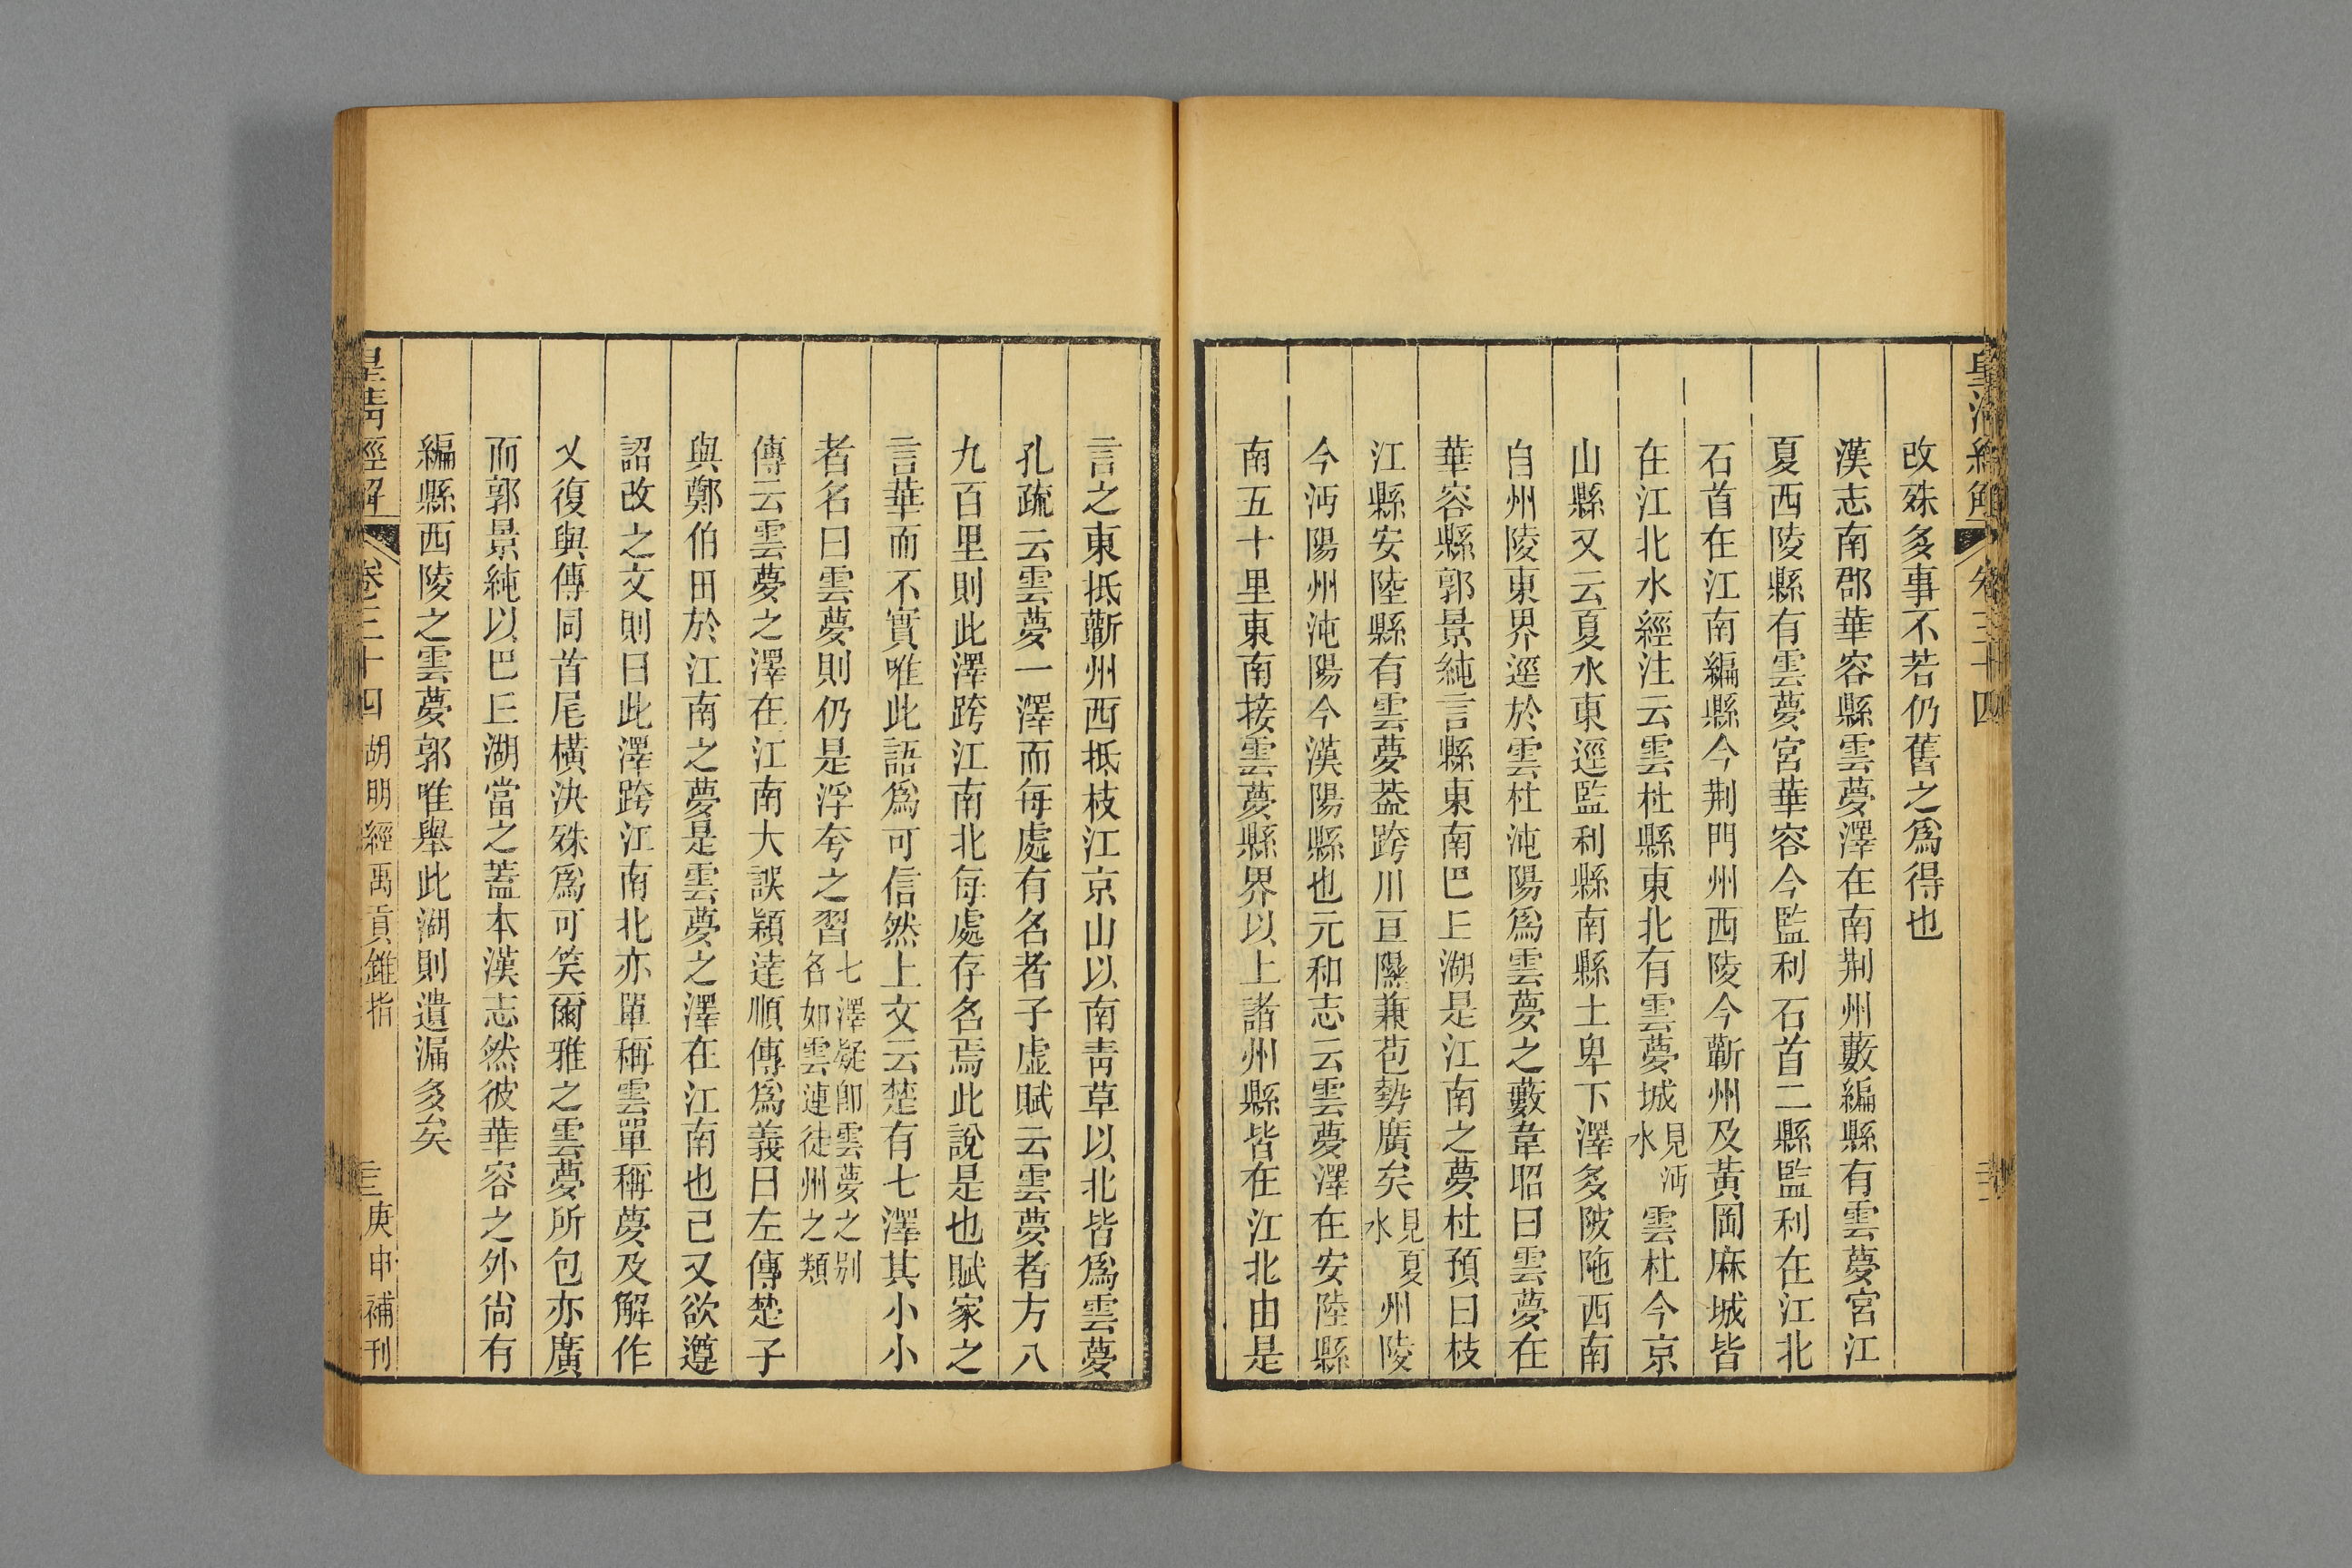 皇清經解
卷三十四
改殊多事不若仍舊之爲得也
漢志南郡華容縣雲夢澤在南荆州藪編縣有雲夢宮江
夏西陵縣有雲夢宮華容今監利石首二縣監利在江北
石首在江南編縣今荆門州西陵今蘄州及黃岡麻城皆
在江北水經注云雲杜縣東北有雲夢城見沔水雲杜今京
山縣又云夏水東逕監利縣南縣土卑下澤多陂陁西南
自州陵東界逕於雲杜沌陽爲雲夢之藪韋昭曰雲夢在
華容縣郭景純言縣東南巴丘湖是江南之夢杜預曰枝
江縣安陸縣有雲夢葢跨川亘隰兼苞勢廣矣見夏水州陵
今沔陽州沌陽今漢陽縣也元和志云雲夢澤在安陸縣
南五十里東南接雲夢縣界以上諸州縣皆在江北由是
言之東抵蘄州西抵枝江京山以南青草以北皆爲雲夢
孔疏云雲夢一澤而每處有名者子虛賦云雲夢者方八
九百里則此澤跨江南北每處存名焉此說是也賦家之
言華而不實唯此語爲可信然上文云楚有七澤其小小
者名曰雲夢則仍是浮夸之習七澤疑卽雲夢之別名如雲連徒州之類
傳云雲夢之澤在江南大誤穎達順傳爲義曰左傳楚子
與鄭伯田於江南之夢是雲夢之澤在江南也已又欲遵
詔改之文則曰此澤跨江南北亦單稱雲單稱夢及解作
乂復與傳同首尾橫決殊爲可笑爾雅之雲夢所包亦廣
而郭景純以巴丘湖當之蓋本漢志然彼華容之外尙有
編縣西陵之雲夢郭唯舉此湖則遺漏多矣
皇清經解
卷三十四
胡明經禹貢錐指
庚申補刊